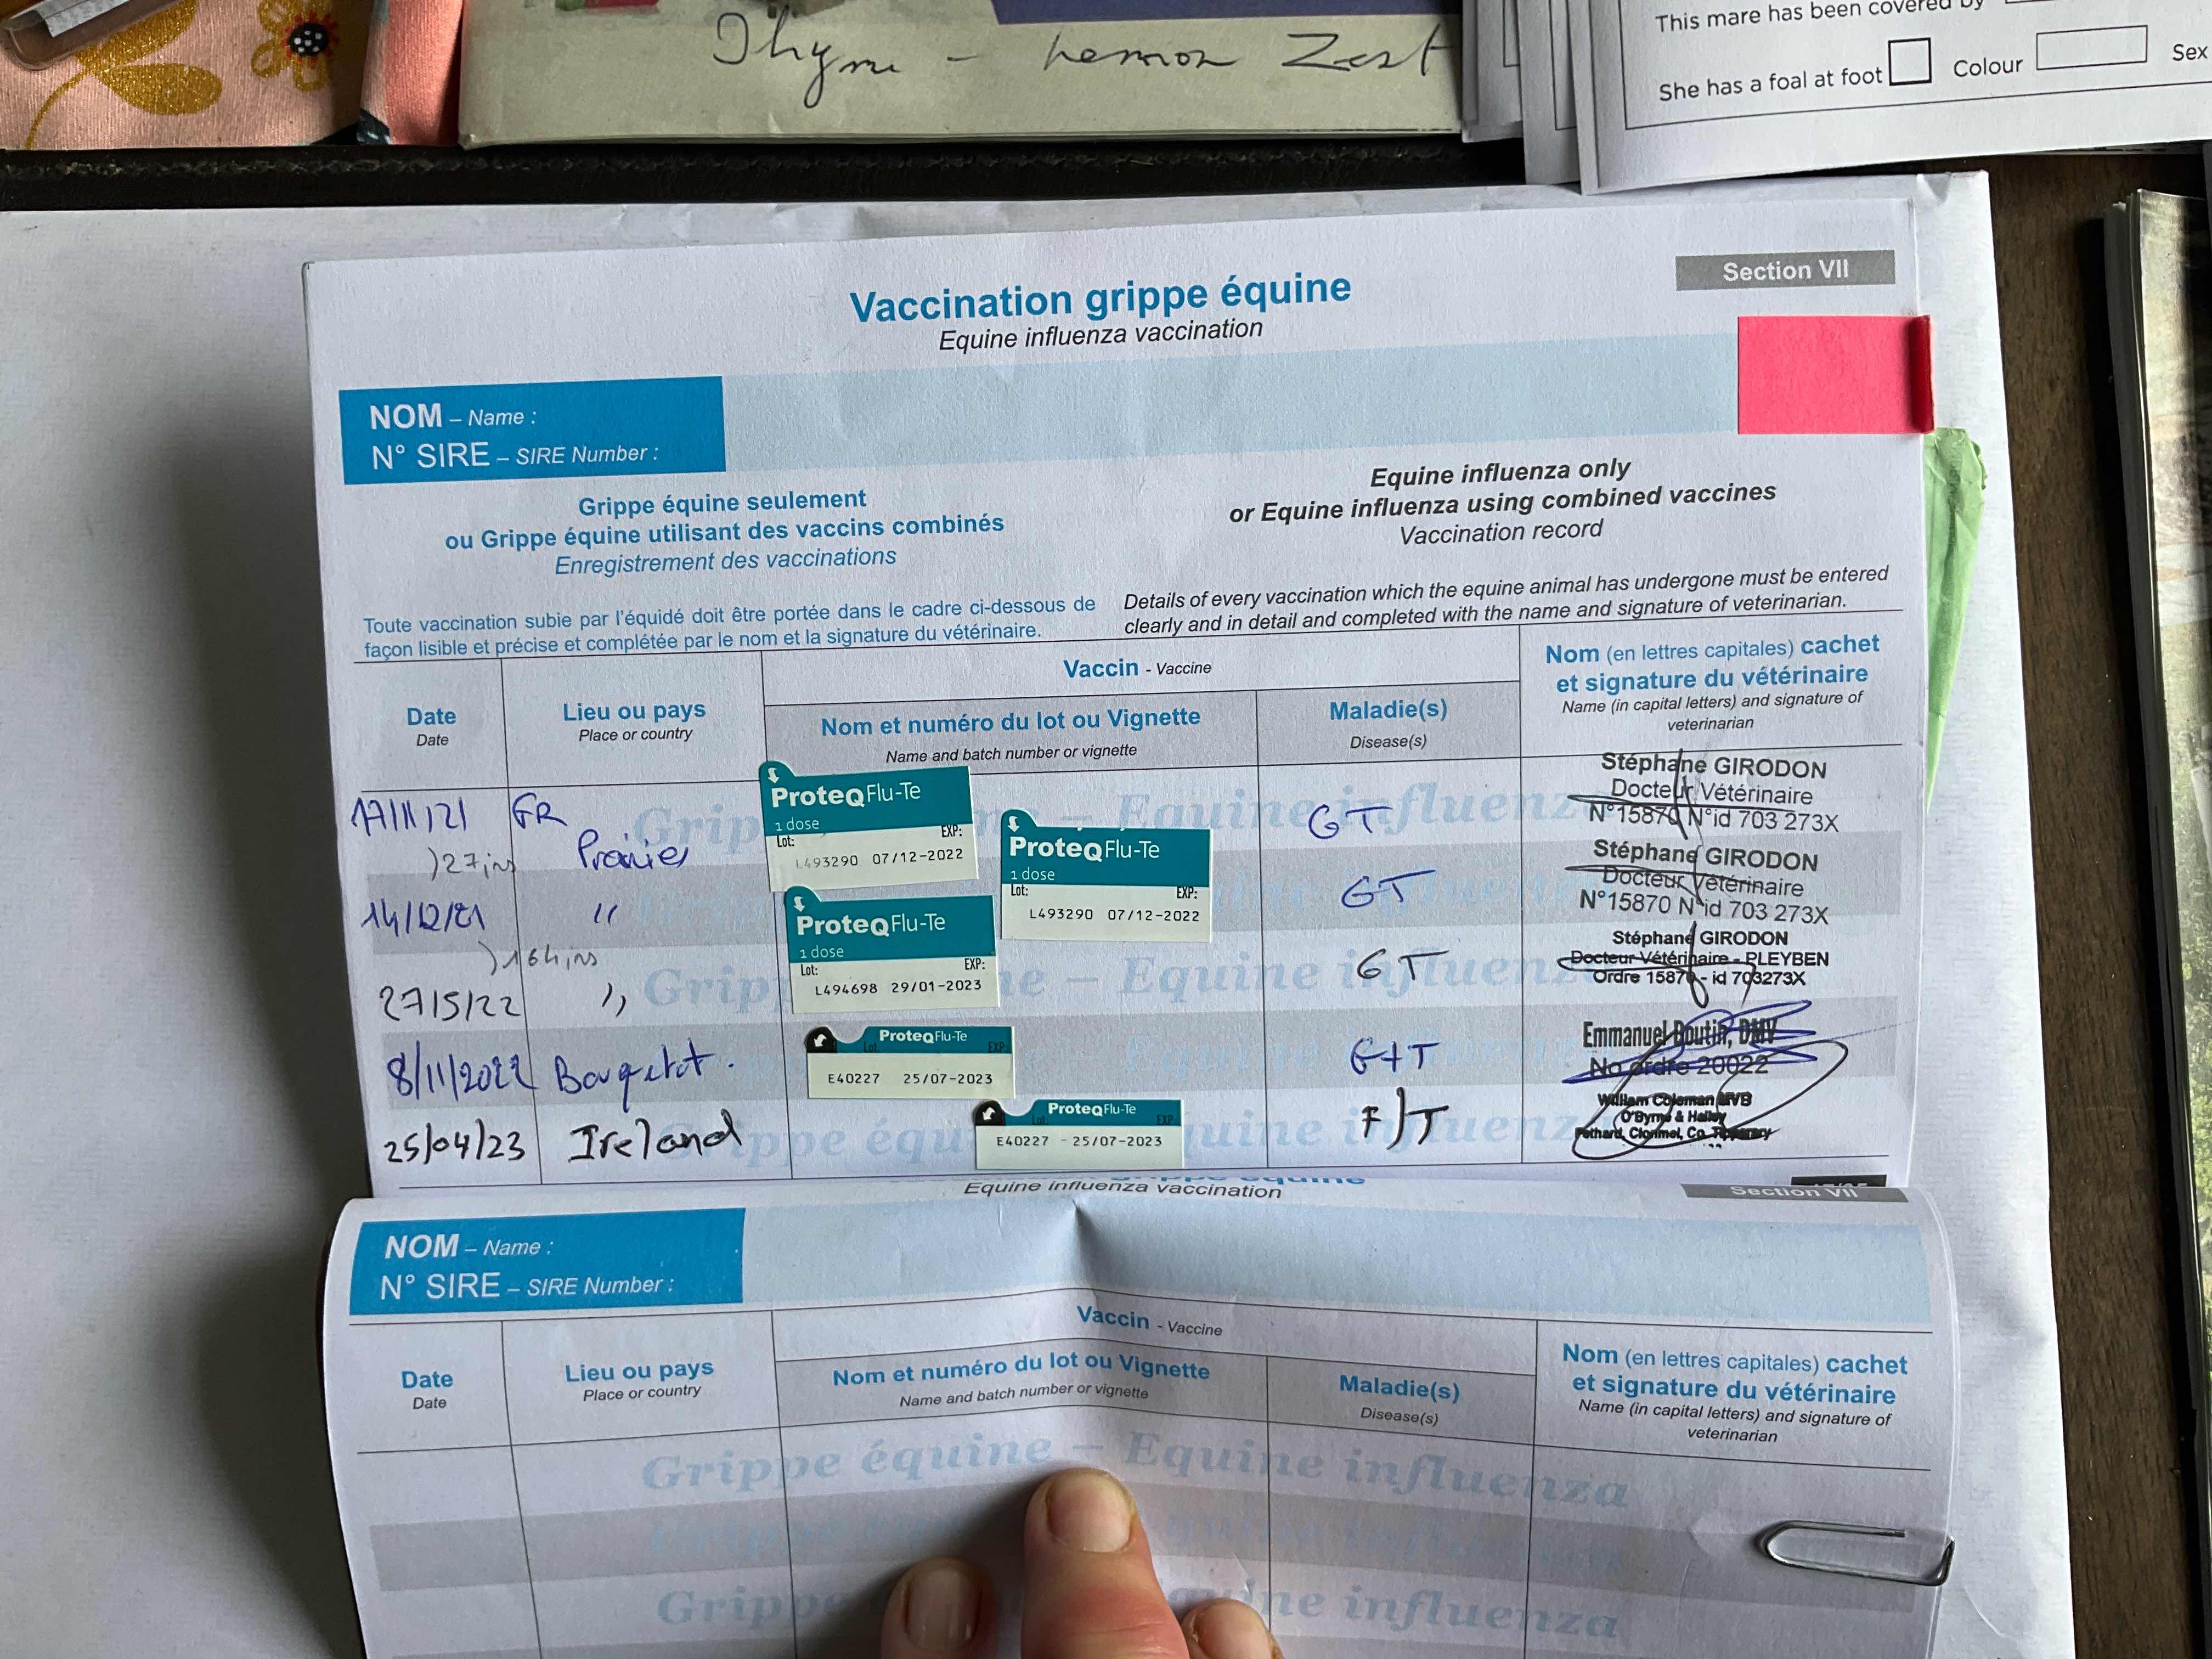 Thyme - Lemon Zest
This mare has been covered by
She has a foal at foot Colour Sex
Section VII
Vaccination grippe équine
Equine influenza vaccination
NOM – Name :
N° SIRE – SIRE Number :
Grippe équine seulement
ou Grippe équine utilisant des vaccins combinés
Enregistrement des vaccinations
Equine influenza only
or Equine influenza using combined vaccines
Vaccination record
Toute vaccination subie par l'équidé doit être portée dans le cadre ci-dessous de
façon lisible et précise et complétée par le nom et la signature du vétérinaire.
Details of every vaccination which the equine animal has undergone must be entered
clearly and in detail and completed with the name and signature of veterinarian.
Date
Date
Lieu ou pays
Place or country
Vaccin - Vaccine
Nom et numéro du lot ou Vignette
Name and batch number or vignette
Maladie(s)
Disease(s)
Nom (en lettres capitales) cachet
et signature du vétérinaire
Name (in capital letters) and signature of
veterinarian
17/11/21
ProteqFlu-Te
1 dose
Lot: EXP:
L493290 07/12-2022
GT
Stéphane GIRODON
Docteur Vétérinaire
N°15870 N°id 703 273X
)27 jrs
14/12/21 "
ProteqFlu-Te
1 dose
Lot: EXP:
L493290 07/12-2022
GT
Stéphane GIRODON
Docteur Vétérinaire
N°15870 N°id 703 273X
)164 jrs
27/5/22 "
ProteqFlu-Te
1 dose
Lot: EXP:
L494698 29/01-2023
GT
Stéphane GIRODON
Docteur Vétérinaire - PLEYBEN
Ordre 15870 - id 703273X
8/11/2022 Bouquetot.
ProteqFlu-Te
Lot: EXP:
E40227 25/07-2023
G+T
Emmanuel Boutin, DMV
No ordre 20022
25/04/23 Ireland
ProteqFlu-Te
Lot: EXP:
E40227 - 25/07-2023
F/T
William Coleman MVB
O'Byrne & Halley
Fethard, Clonmel, Co. Tipperary
Grippe équine – Equine influenza
Equine influenza vaccination
Section VII
NOM – Name :
N° SIRE – SIRE Number :
Date
Date
Lieu ou pays
Place or country
Vaccin - Vaccine
Nom et numéro du lot ou Vignette
Name and batch number or vignette
Maladie(s)
Disease(s)
Nom (en lettres capitales) cachet
et signature du vétérinaire
Name (in capital letters) and signature of
veterinarian
Grippe équine – Equine influenza
Grippe équine – Equine influenza